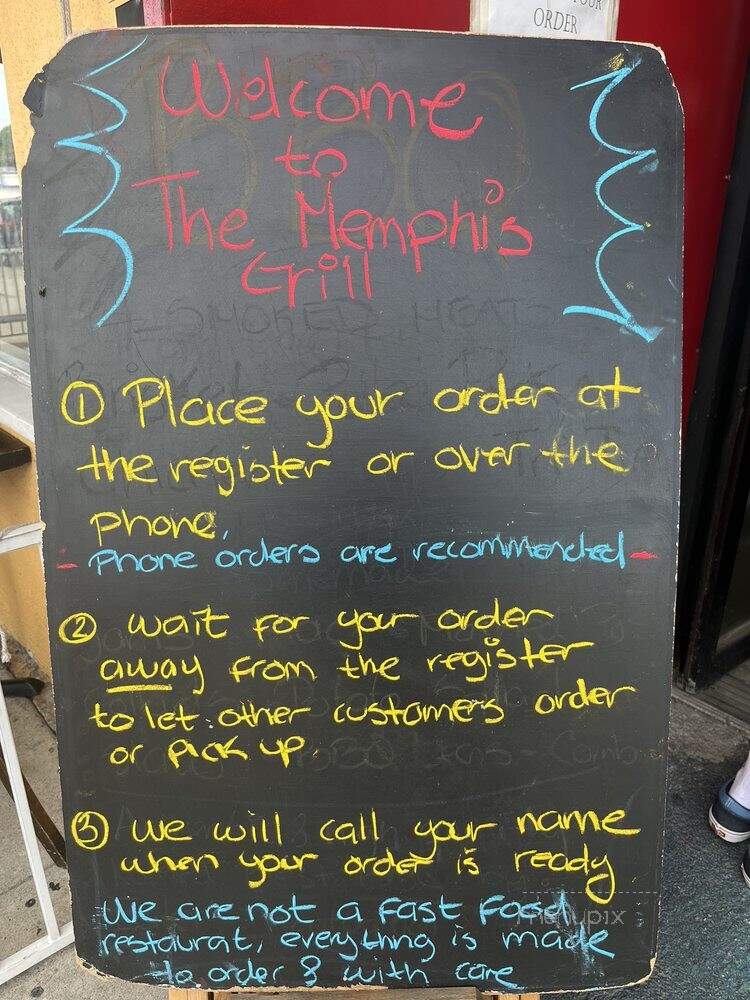 YOUR
ORDER
Welcome
to
The Memphis
Grill
① Place your order at
the register or over the
phone.
- Phone orders are recommended -
② wait for your order
away from the register
to let other customers order
or pick up
③ we will call your name
when your order is ready
We are not a fast food
restaurat, everything is made
to order & with care
menupix